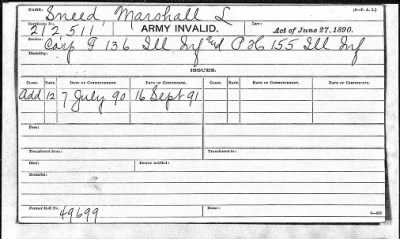 NAME: Sneed, Marshall L (3—P. A. L.)
Certificate No. 212511 ARMY INVALID. Law: Act of June 27, 1890.
Service: Corp G 136 Ill Inf and P H 155 Ill Inf
Disability:
ISSUES.
CLASS. RATE. DATE OF COMMENCEMENT. DATE OF CERTIFICATE. CLASS. RATE. DATE OF COMMENCEMENT. DATE OF CERTIFICATE.
Add 12 7 July 90 16 Sept 91
From:
Transferred from:
Died: Bureau notified:
Remarks:
Former Roll No. 49699 Home: